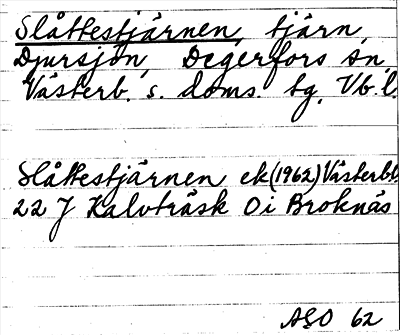 Slåttestjärnen, tjärn,
Djursjön, Degerfors sn,
Västerb. s. doms. tg, Vb.l.
Slåttestjärnen ek (1962) Västerbb.
22 J Kalvträsk 0 i Broknäs
ASO 62